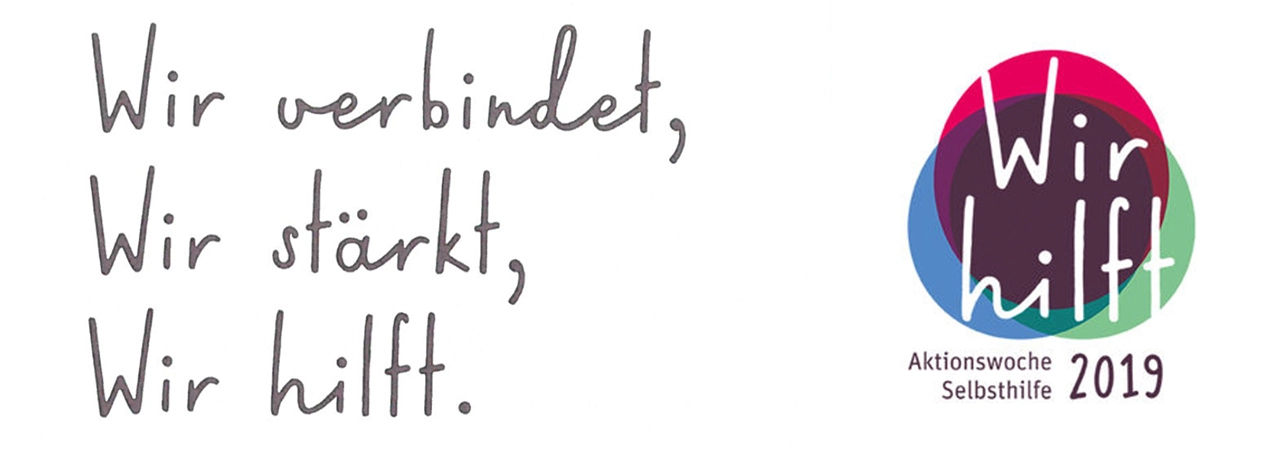 Wir verbindet,
Wir stärkt,
Wir hilft.
Wir
hilft
Aktionswoche
Selbsthilfe 2019